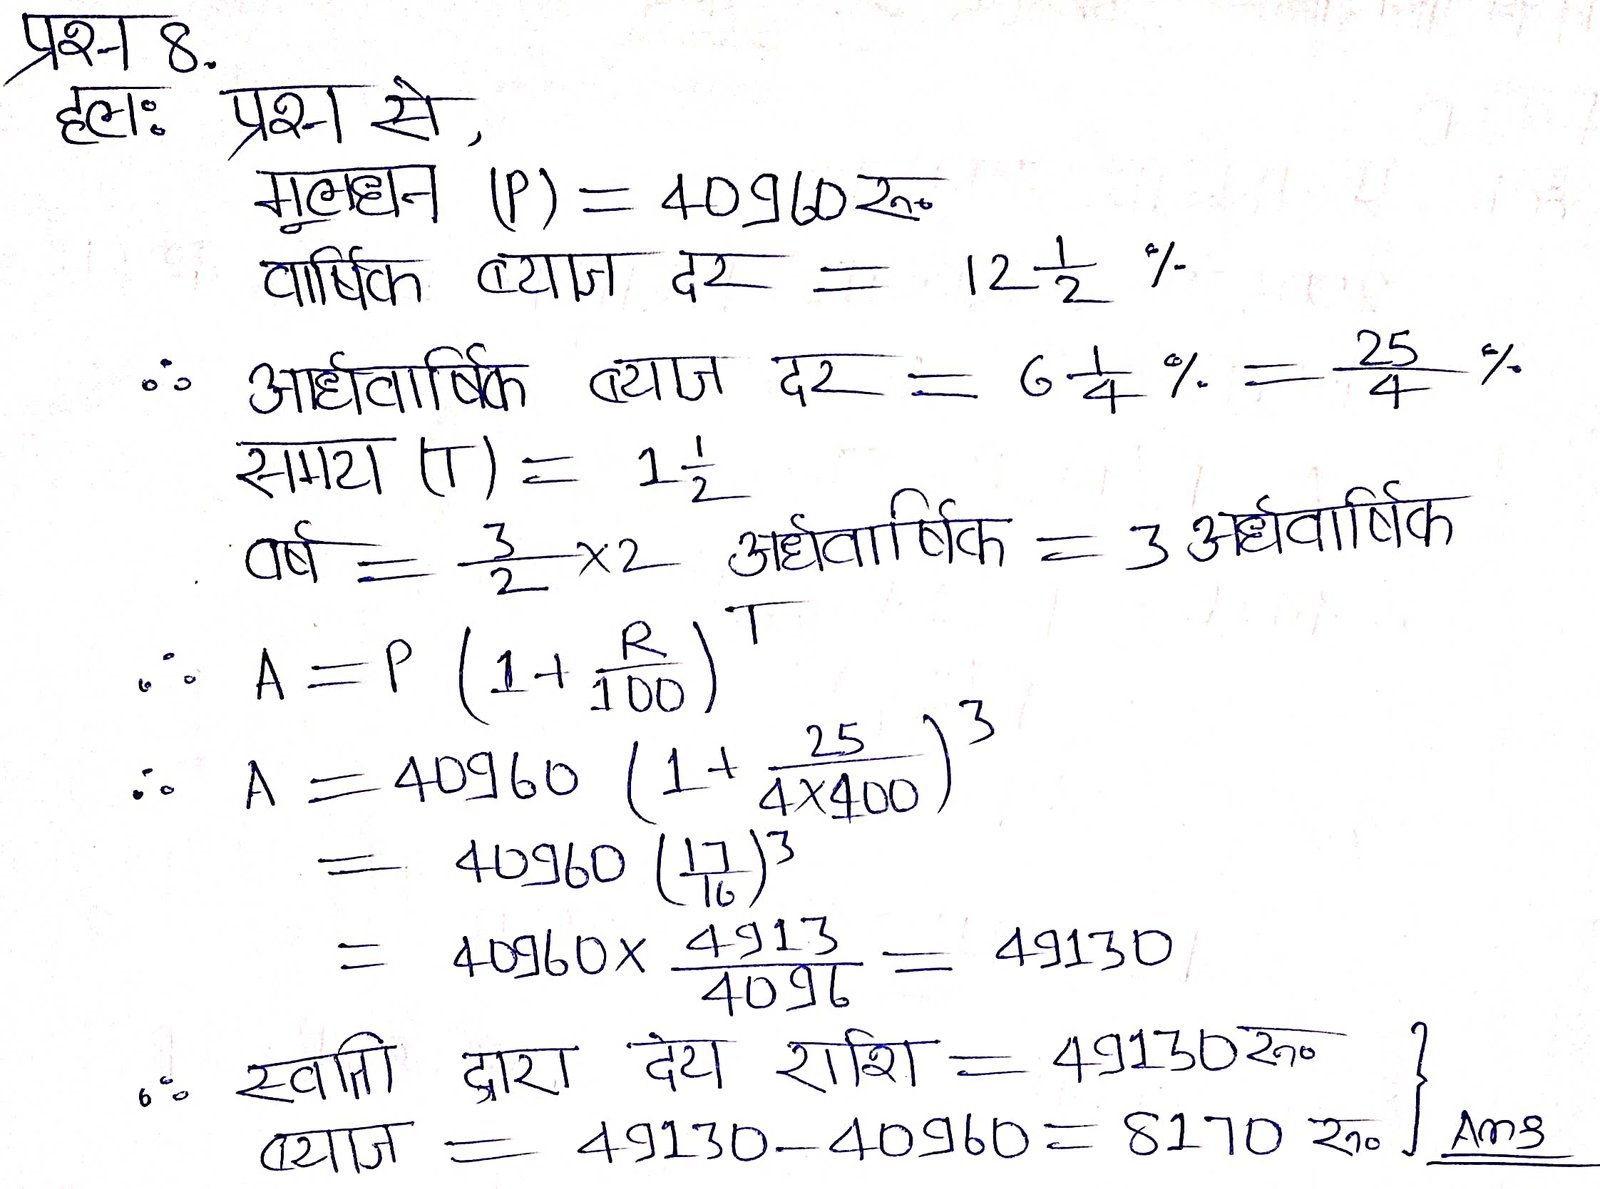 प्रश्न 8.
हलः प्रश्न से,
मूलधन (P) = 40960 रू०
वार्षिक ब्याज दर = 12 1/2 %
∴ अर्धवार्षिक ब्याज दर = 6 1/4 % = 25/4 %
समय (T) = 1 1/2
वर्ष = 3/2 × 2 अर्धवार्षिक = 3 अर्धवार्षिक
∴ A = P (1 + R/100)^T
∴ A = 40960 (1 + 25/4×400)^3
= 40960 (17/16)^3
= 40960 × 4913/4096 = 49130
∴ स्वाति द्वारा देय राशि = 49130 रू०
ब्याज = 49130 - 40960 = 8170 रू० } Ans